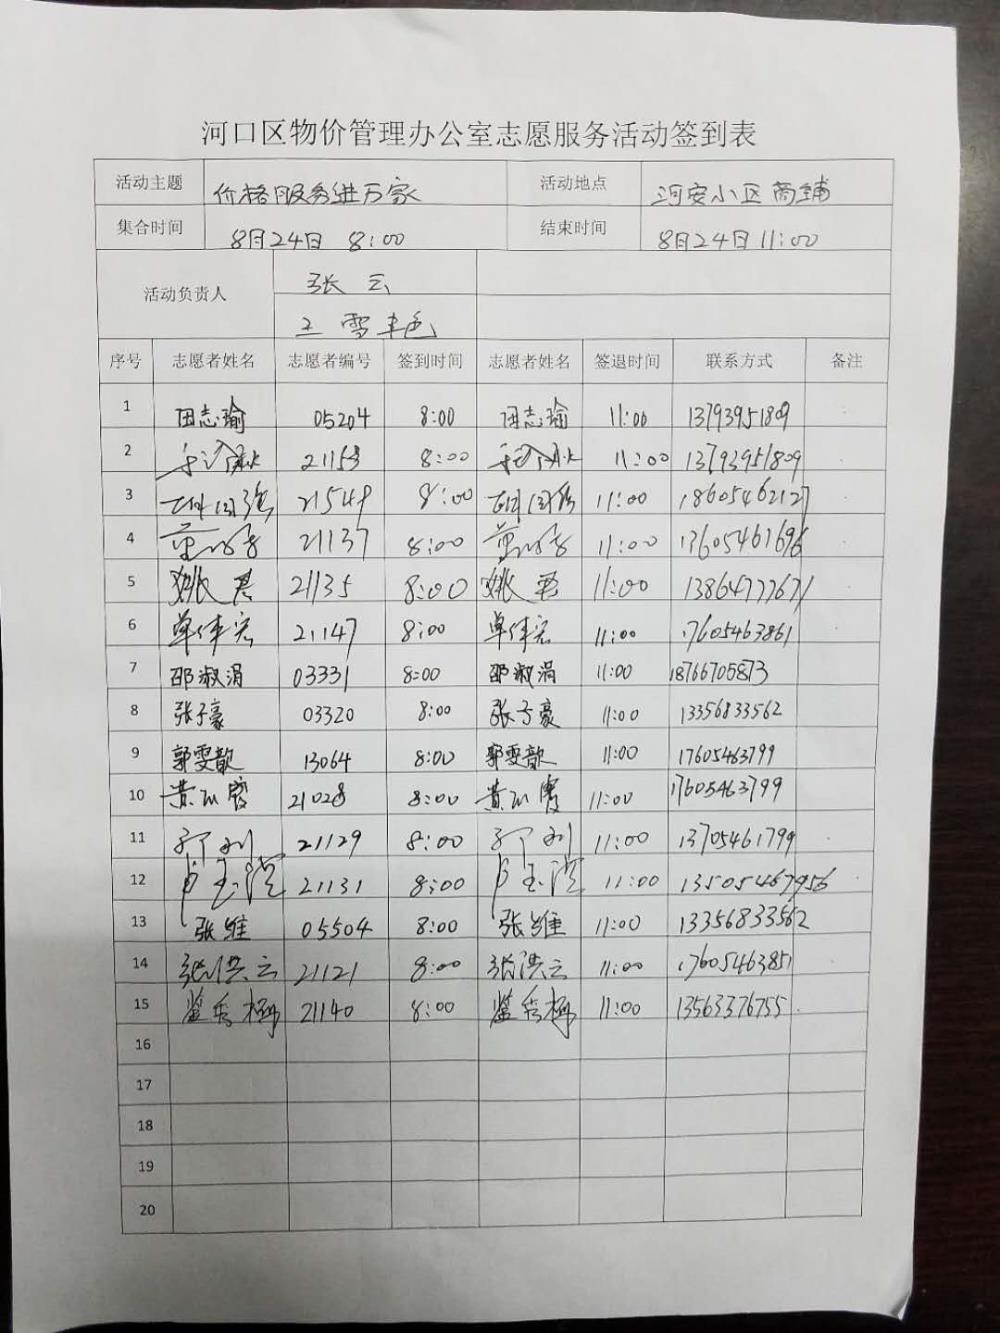 河口区物价管理办公室志愿服务活动签到表
活动主题 价格服务进万家 活动地点 河安小区商铺
集合时间 8月24日 8:00 结束时间 8月24日 11:00
活动负责人 张云
序号 志愿者姓名 志愿者编号 签到时间 志愿者姓名 签退时间 联系方式 备注
1 田志瑜 05204 8:00 田志瑜 11:00 13793951809
2 21153 8:00 11:00 13793951809
3 21549 8:00 11:00 18605462127
4 21137 8:00 11:00 13605461696
5 姚君 21135 8:00 姚君 11:00 13864777671
6 单伟宏 21147 8:00 单伟宏 11:00 17605463861
7 邵淑涓 03331 8:00 邵淑涓 11:00 18766705873
8 张子豪 03320 8:00 张子豪 11:00 13356833562
9 郭雯歆 13064 8:00 郭雯歆 11:00 17605463799
10 21028 8:00 11:00 17605463799
11 21129 8:00 11:00 13705461799
12 21131 8:00 11:00 13505467956
13 张维 05504 8:00 张维 11:00 13356833562
14 张洪云 21121 8:00 张洪云 11:00 17605463851
15 21140 8:00 11:00 13563376755
16
17
18
19
20